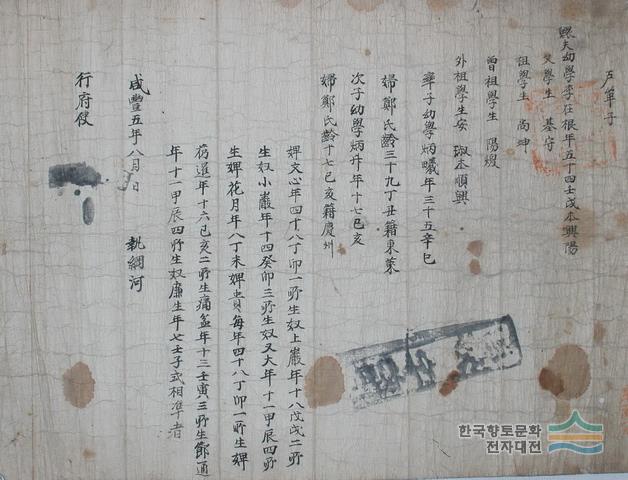 戶單子
鰥夫幼學李在根年五十四壬戌本興陽
父學生 基守
祖學生 尚坤
曾祖學生 陽煥
外祖學生安 淑本順興
率子幼學炳曦年三十五辛巳
婦鄭氏齡三十九丁丑籍東萊
次子幼學炳升年十七己亥
婦鄭氏齡十七己亥籍慶州
婢文心年四十八丁卯一所生奴上巖年十八戊戌二所
生奴小巖年十四癸卯三所生奴又大年十一甲辰四所
生婢花月年八丁未婢貴每年四十八丁卯一所生婢
年十六己亥二所生 年十三壬寅三所生節通
年十一甲辰四所生奴廉生年七壬子式相準者
咸豊五年八月 日 執綱河
行府使
한국향토문화
전자대전